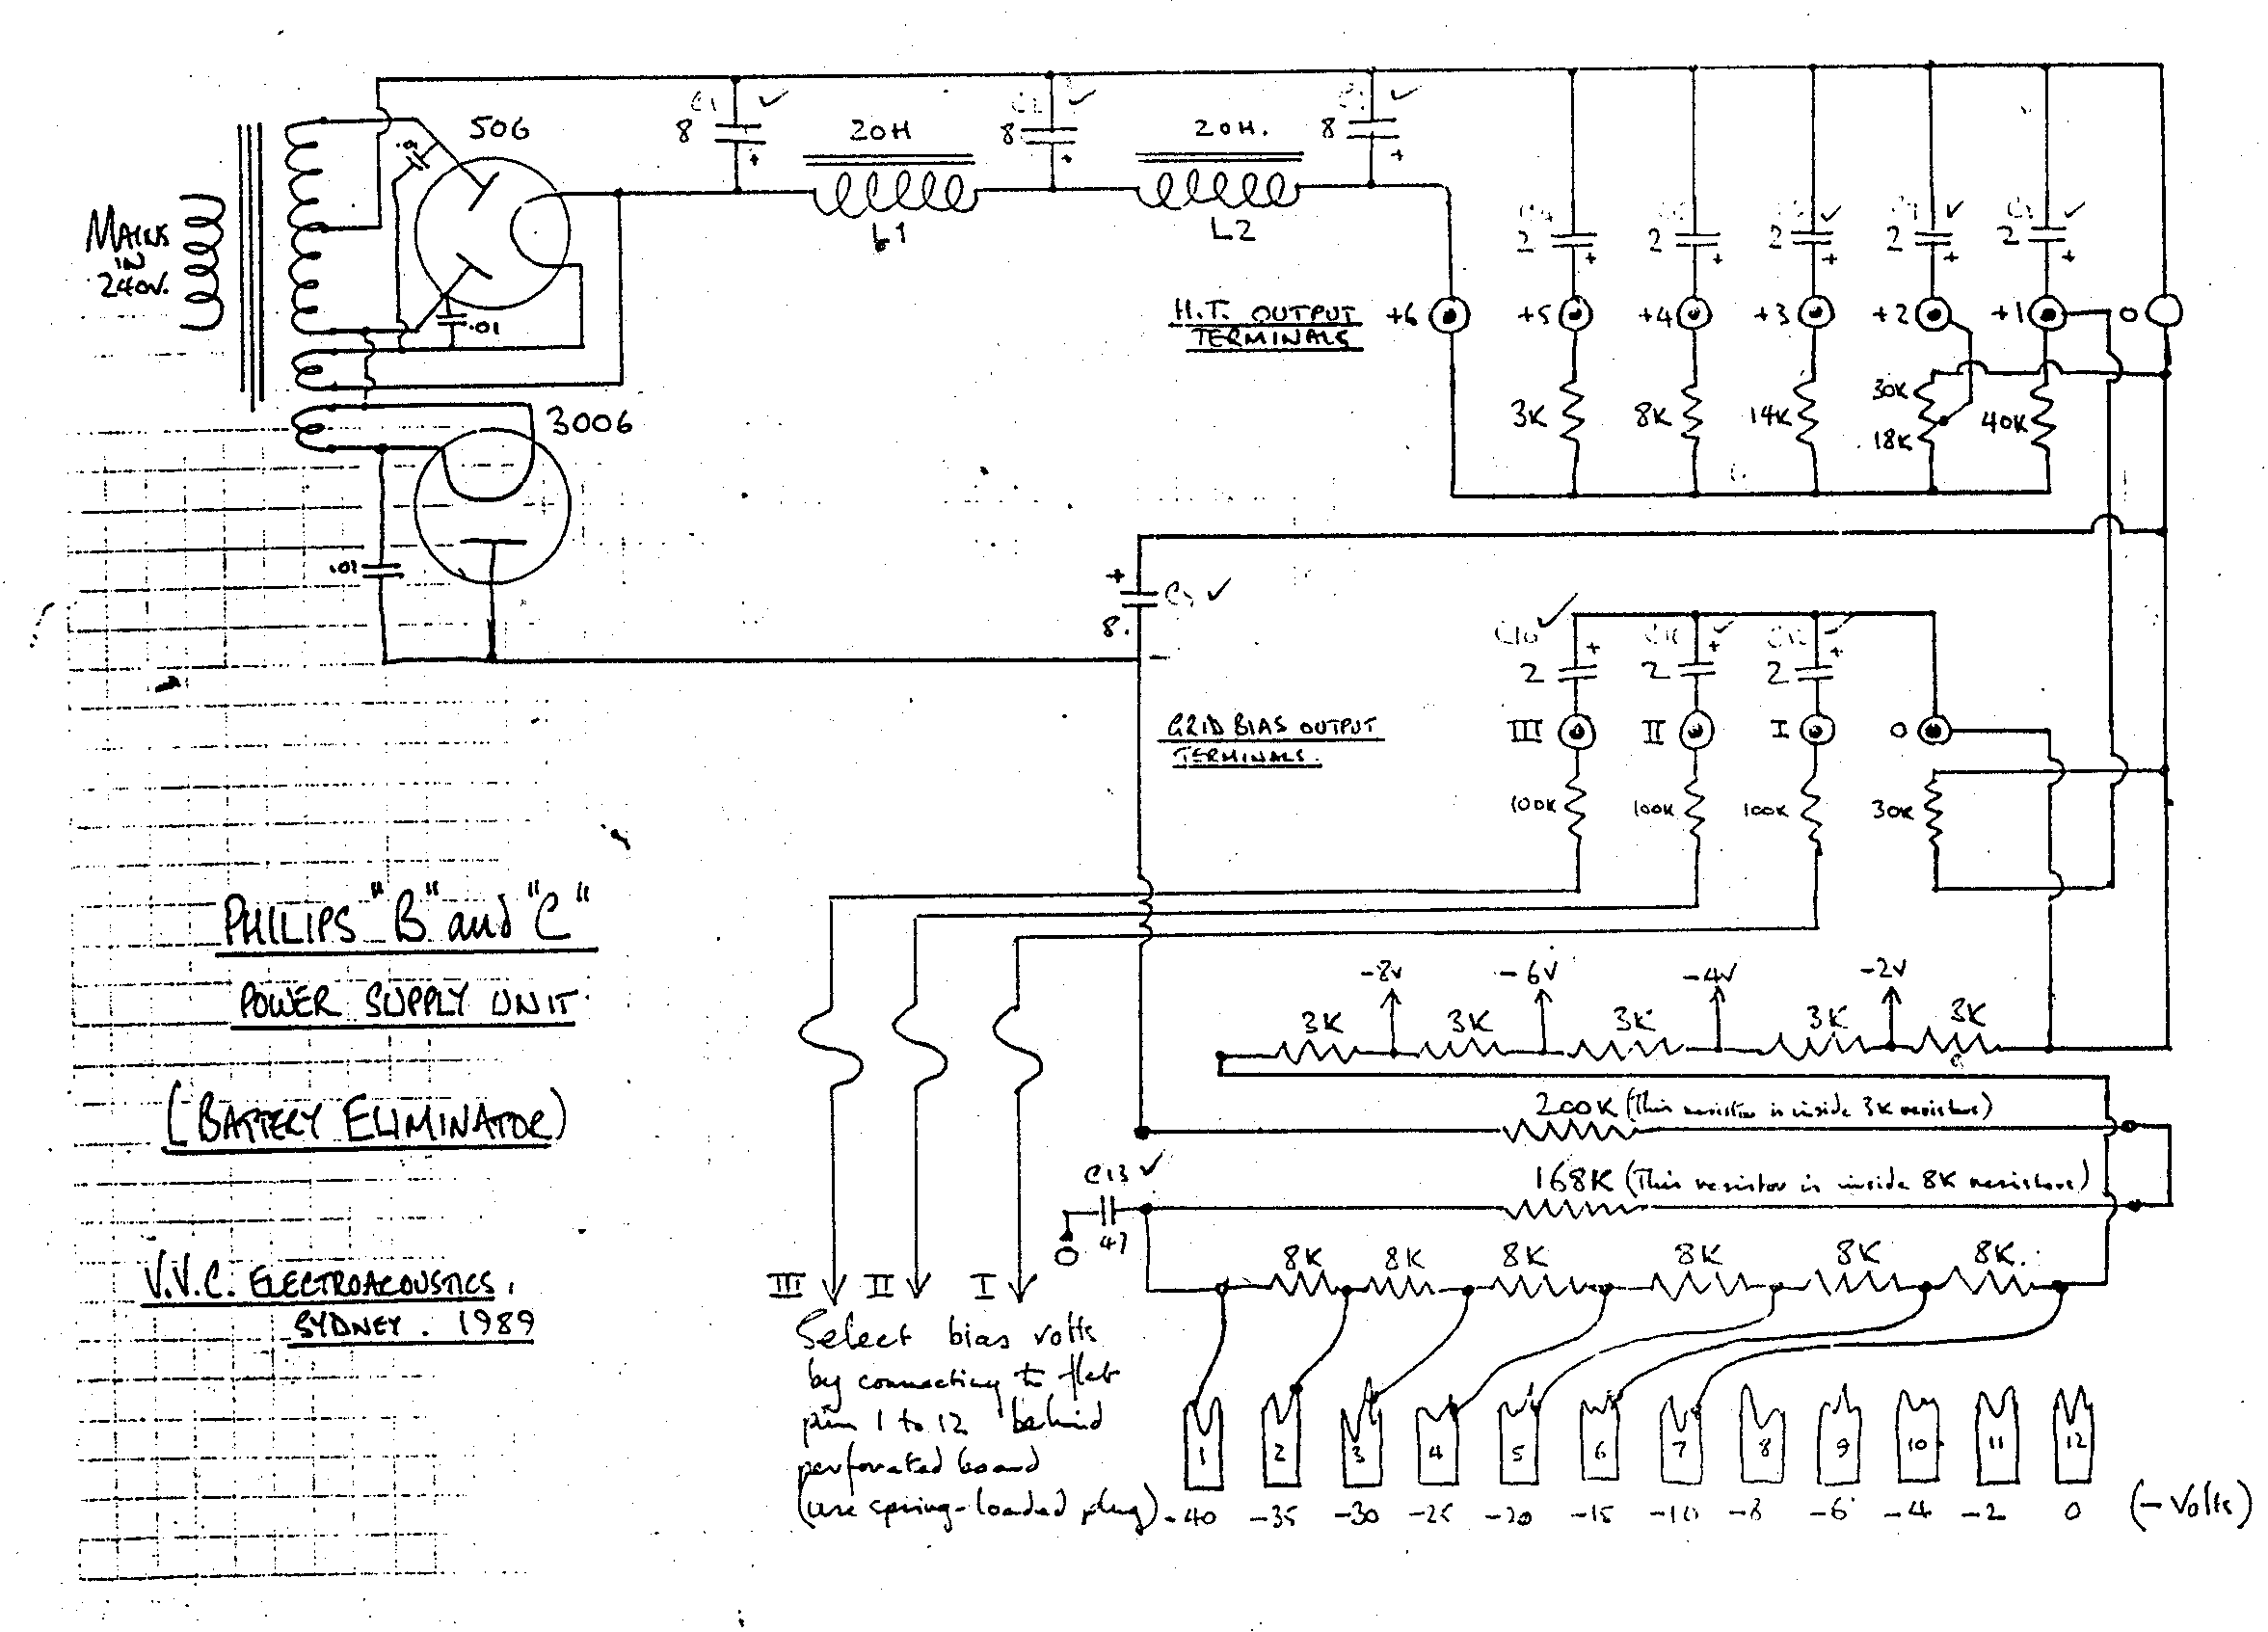 506
C1
8
+
20H
L1
C2
8
+
20H.
L2
8
+
.01
MAINS
IN
240V.
.01
2
+
2
+
2
+
2
+
2
+
H.T. OUTPUT
TERMINALS
+6
+5
+4
+3
+2
+1
0
3K
8K
14K
30K
18K
40K
3006
.01
+
8.
-
C10
2
+
C11
2
+
C12
2
+
GRID BIAS OUTPUT
TERMINALS.
III
II
I
0
100K
100K
100K
30K
PHILIPS "B" and "C"
POWER SUPPLY UNIT
(BATTERY ELIMINATOR)
V.V.C. ELECTROACOUSTICS,
SYDNEY. 1989
-8V
-6V
-4V
-2V
3K
3K
3K
3K
3K
200K (This resistor is inside 3K resistors)
168K (This resistor is inside 8K resistors)
C13
47
0
8K
8K
8K
8K
8K
8K.
III
II
I
Select bias volts
by connecting to flat
pin 1 to 12 behind
perforated board
(use spring-loaded plug)
1
2
3
4
5
6
7
8
9
10
11
12
-40
-35
-30
-25
-20
-15
-10
-8
-6
-4
-2
0
(- Volts)